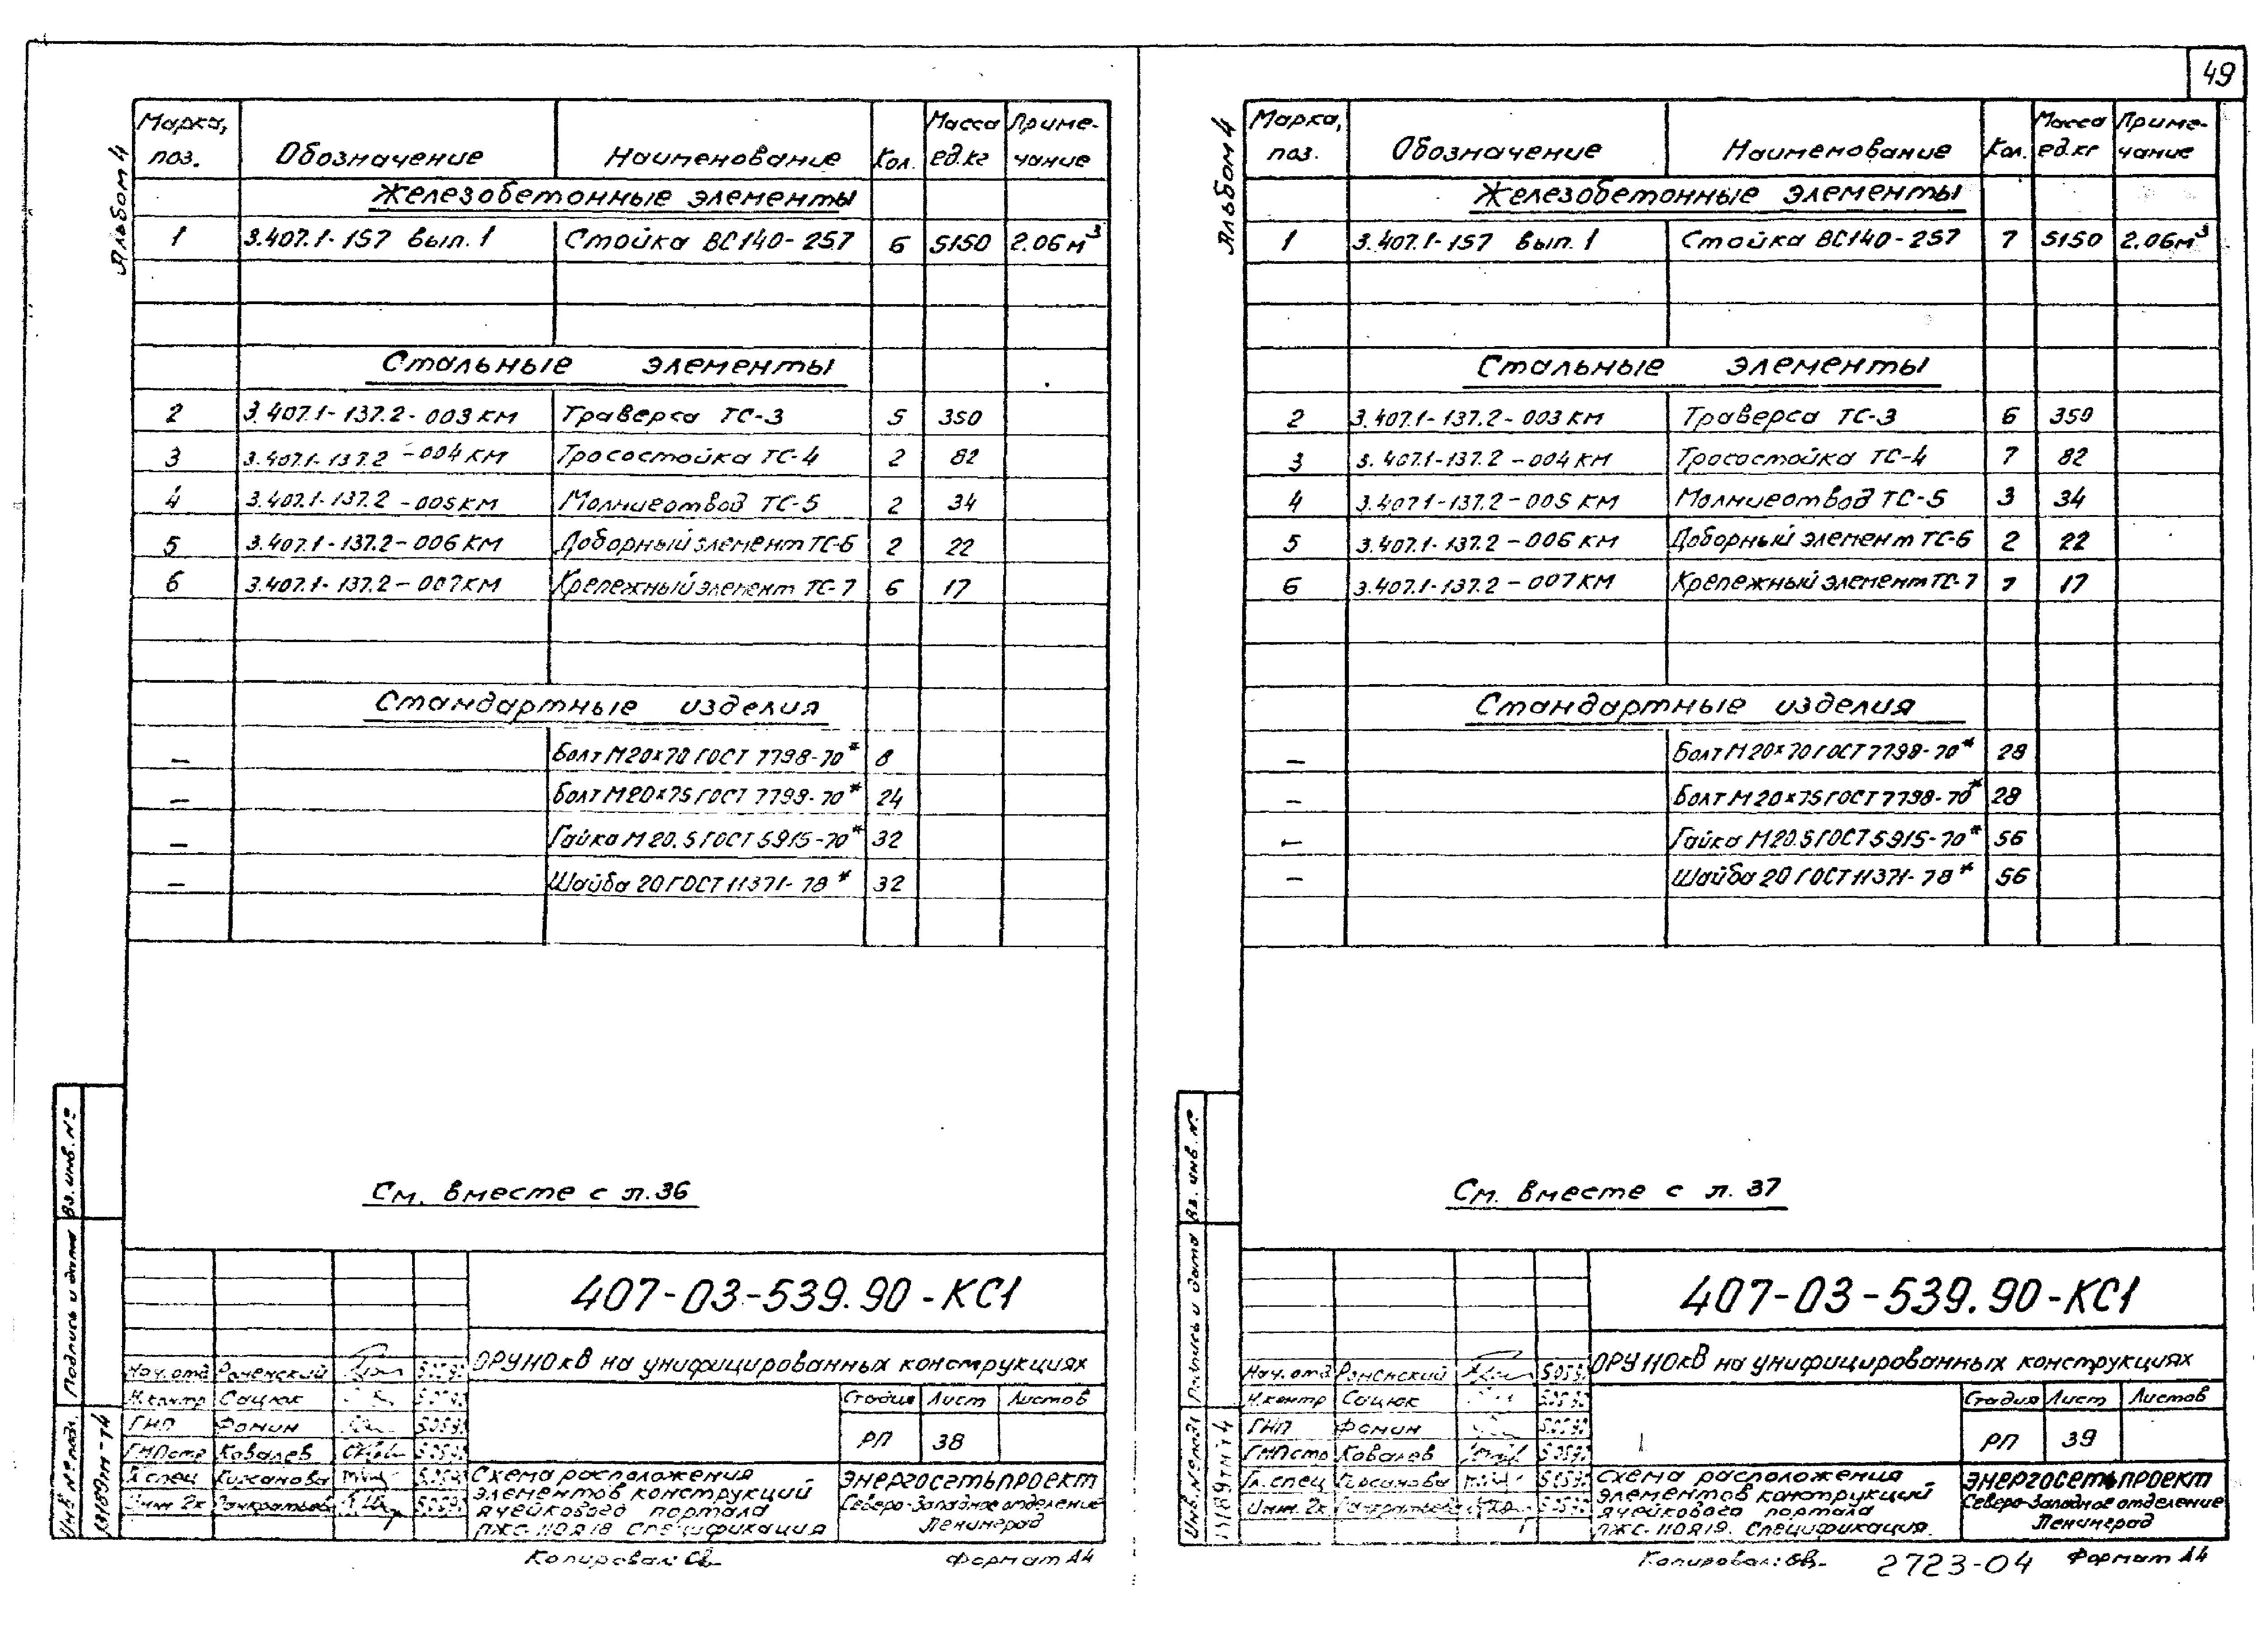 49
Альбом 4
Марка, поз. Обозначение Наименование Кол. Масса ед.кг Приме-чание
Железобетонные элементы
1 3.407.1-157 вып.1 Стойка ВС140-257 6 5150 2.06м³
Стальные элементы
2 3.407.1-137.2-003КМ Траверса ТС-3 5 350
3 3.407.1-137.2-004КМ Тросостойка ТС-4 2 82
4 3.407.1-137.2-005КМ Молниеотвод ТС-5 2 34
5 3.407.1-137.2-006КМ Доборный элемент ТС-6 2 22
6 3.407.1-137.2-007КМ Крепежный элемент ТС-7 6 17
Стандартные изделия
— Болт М20×70 ГОСТ 7798-70* 8
— Болт М20×75 ГОСТ 7798-70* 24
— Гайка М20.5 ГОСТ 5915-70* 32
— Шайба 20 ГОСТ 11371-78* 32
См. вместе с л.36
Вз. инв. №
Подпись и дата
Инв № подл.
13189тм-т4
407-03-539.90-КС1
Нач.отд Роменский
ОРУ110кВ на унифицированных конструкциях
Н.контр Сацюк
Стадия Лист Листов
ГИП Фомин
РП 38
ГИПстр Ковалев
Гл.спец Кирсанова
Инж.2к Панкратьева
Схема расположения
элементов конструкций
ячейкового портала
ПЖС-110Я18 Спецификация
Энергосетьпроект
Северо-Западное отделение
Ленинград
Копировал:
Формат А4
Альбом 4
Марка, поз. Обозначение Наименование Кол. Масса ед.кг Приме-чание
Железобетонные элементы
1 3.407.1-157 вып.1 Стойка ВС140-257 7 5150 2.06м³
Стальные элементы
2 3.407.1-137.2-003КМ Траверса ТС-3 6 350
3 3.407.1-137.2-004КМ Тросостойка ТС-4 7 82
4 3.407.1-137.2-005КМ Молниеотвод ТС-5 3 34
5 3.407.1-137.2-006КМ Доборный элемент ТС-6 2 22
6 3.407.1-137.2-007КМ Крепежный элемент ТС-7 7 17
Стандартные изделия
— Болт М20×70 ГОСТ 7798-70* 28
— Болт М20×75 ГОСТ 7798-70* 28
— Гайка М20.5 ГОСТ 5915-70* 56
— Шайба 20 ГОСТ 11371-78* 56
См. вместе с л. 37
Вз. инв. №
Подпись и дата
Инв. № подл
13189тм-т4
407-03-539.90-КС1
Нач.отд Роменский
ОРУ110кВ на унифицированных конструкциях
Н.контр Сацюк
Стадия Лист Листов
ГИП Фомин
РП 39
ГИПстр Ковалев
Гл.спец Кирсанова
Инж.2к Панкратьева
Схема расположения
элементов конструкций
ячейкового портала
ПЖС-110Я19. Спецификация.
Энергосетьпроект
Северо-Западное отделение
Ленинград
Копировал:
2723-04
Формат А4